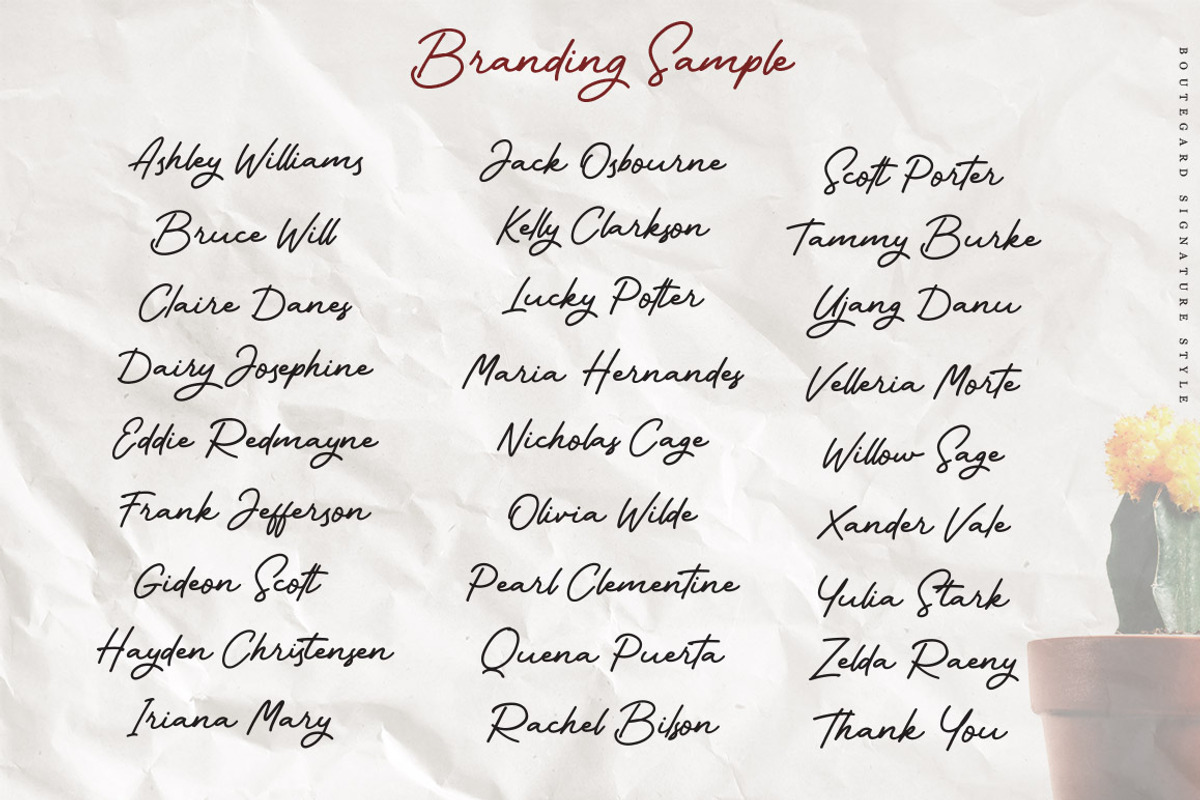 Branding Sample
Ashley Williams
Bruce Will
Claire Danes
Dairy Josephine
Eddie Redmayne
Frank Jefferson
Gideon Scott
Hayden Christensen
Iriana Mary
Jack Osbourne
Kelly Clarkson
Lucky Potter
Maria Hernandes
Nicholas Cage
Olivia Wilde
Pearl Clementine
Quena Puerta
Rachel Bilson
Scott Porter
Tammy Burke
Ujang Danu
Velleria Morte
Willow Sage
Xander Vale
Yulia Stark
Zelda Raeny
Thank You
BOUTEGARD SIGNATURE STYLE